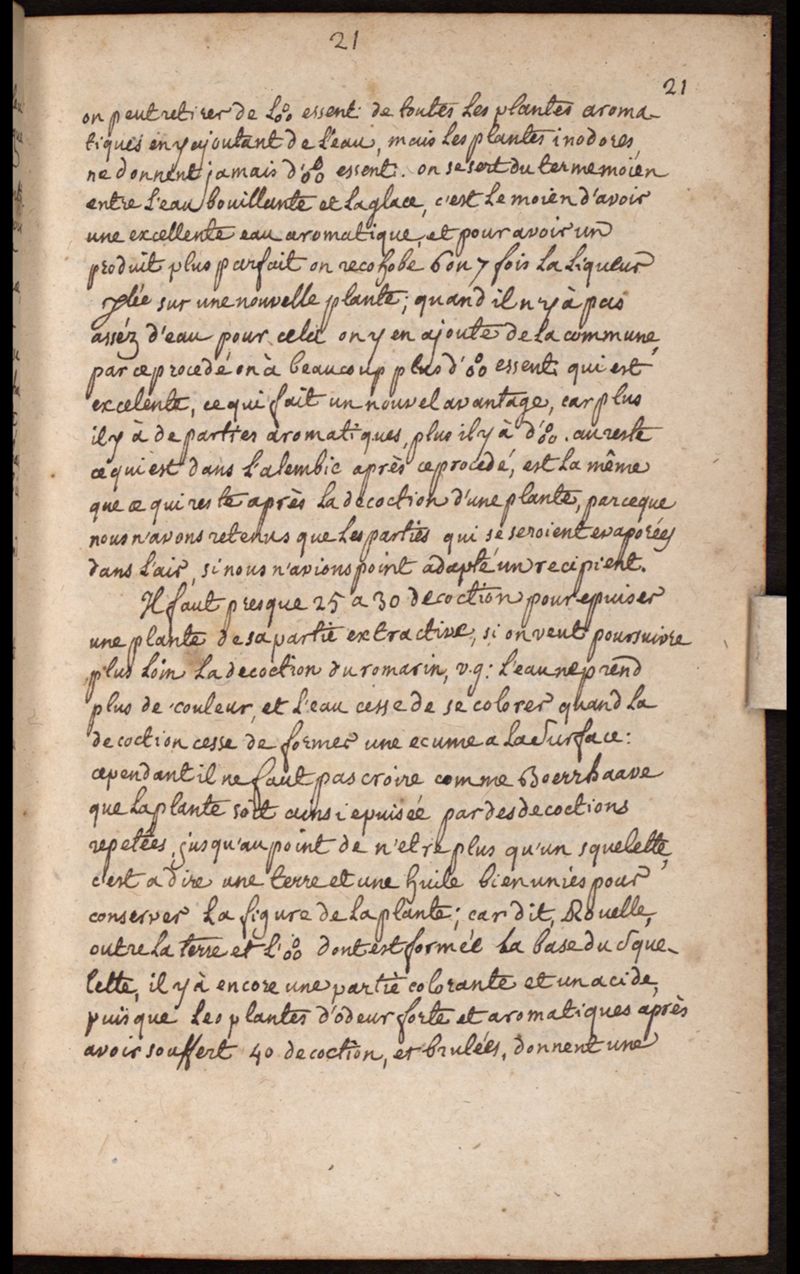 21
21
on peut retirer de L'o°o essent: de toutes Les plantes aroma-
tiques en y ajoutant de L'eau, mais Les plantes inodores
ne donnent jamais d'o°o essent. on se sert du terme moïen
entre L'eau bouillante et La glace, c'est Le moïen d'avoir
une excellente eau aromatique, et pour avoir un
produit plus parfait on recohobe 6 ou 7 fois La Liqueur
sur une nouvelle plante; quand il n'y à pas
asséz d'eau pour cela on y en ajoute de La commune,
par ce procedé on à beaucoup plus d'o°o essent: qui est
excelente, ce qui fait un nouvel avantage, car plus
il y à de parties aromatiques, plus il y à d'o°o. au reste
ce qui est dans L'alembic après ce procédé, est La même
que ce qui reste après La decoction d'une plante, parceque
nous n'avons retenus que Les parties qui se seroient evaporées
dans L'air, si nous n'avions point adapté un recipient.
Il faut presque 25 a 30 decoction pour epuiser
une plante de sa partie extractive, si on veut poursuivre
plus Loin La decoction du romarin, v.g: L'eau ne prend
plus de couleur, et L'eau cesse de se colorer quand La
decoction cesse de former une ecume a La Surface:
cependant il ne faut pas croire comme Boerrhaave
que La plante soit ainsi epuisée par des decoctions
repetées, jusqu'au point de n'etre plus qu'un squelette,
c'est a dire une terre et une huile bien uniés pour
conserver La figure de La plante; car dit, Rouelle,
outre La terre et L'o°o dont est formée La base du Sque-
lette, il y à encore une partie colorante et un acide,
puisque Les plantes d'odeur forte et aromatiques après
avoir souffert 40 decoction, et brulées, donnent une